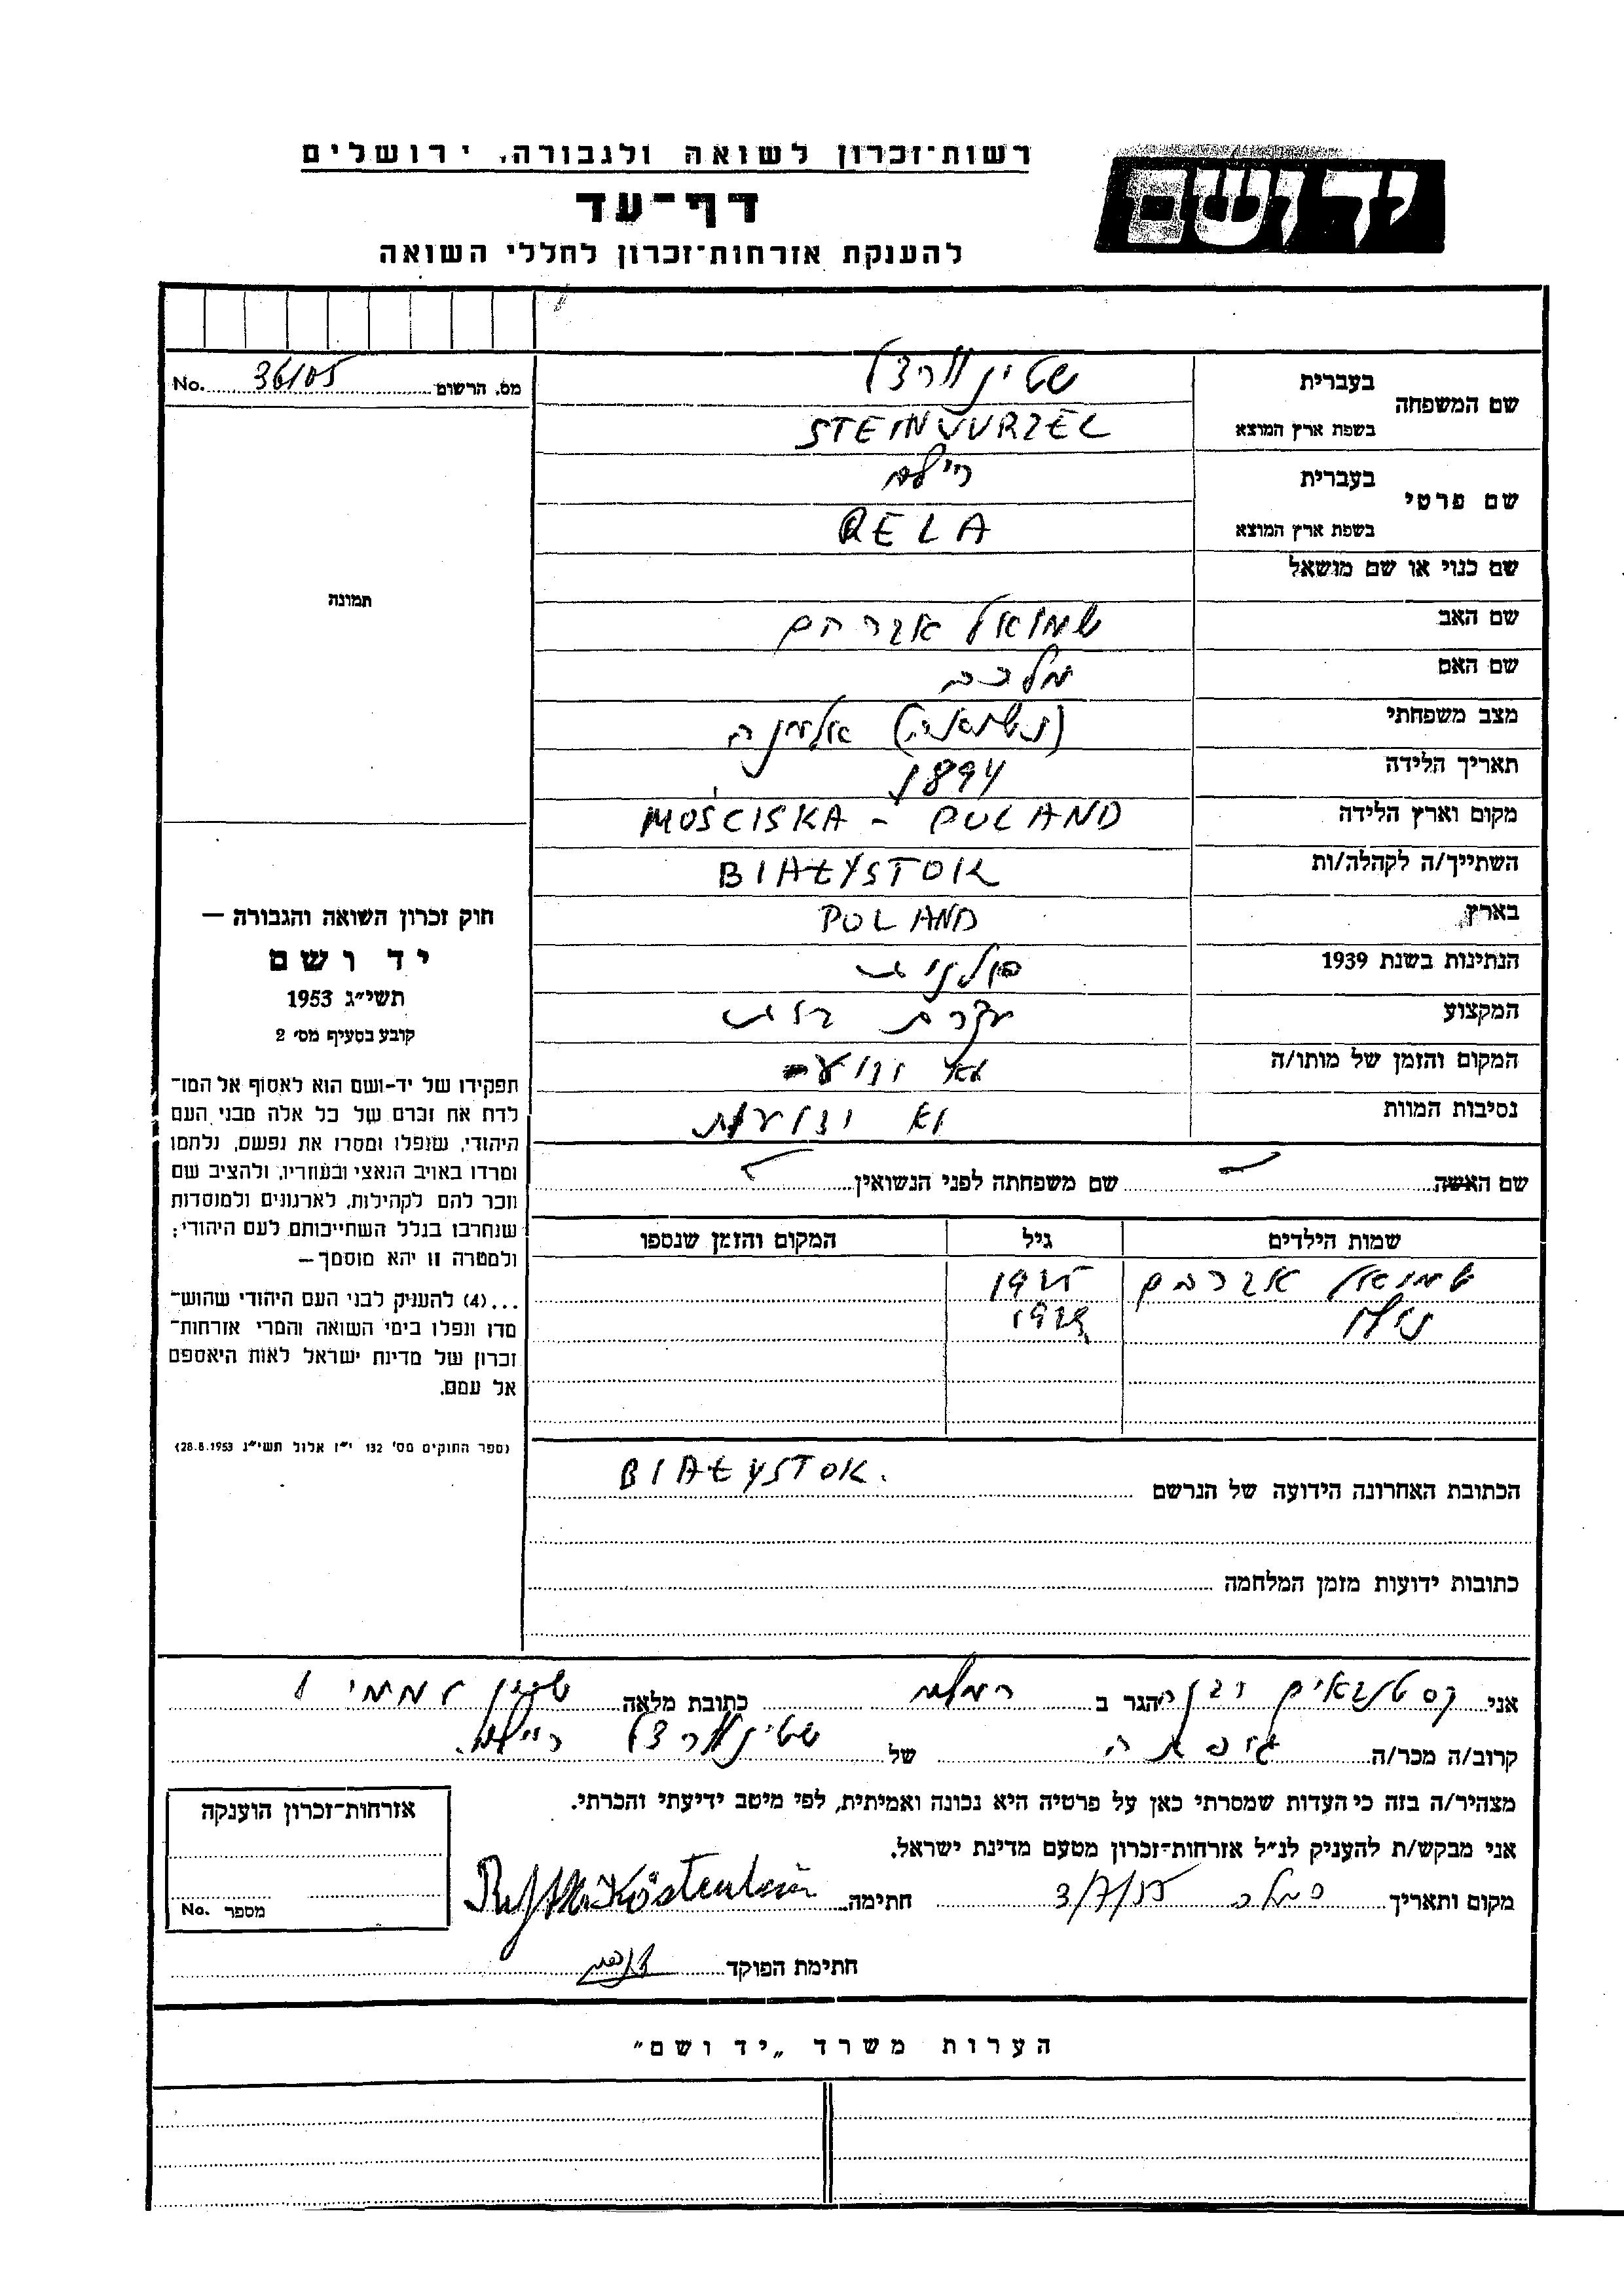 ידושם
רשות־זכרון לשואה ולגבורה, ירושלים
דף־עד
להענקת אזרחות־זכרון לחללי השואה
מס. הרשום 36105 No.
תמונה
שם המשפחה
בעברית שטיינוורצל
בשפת ארץ המוצא STEINWURZEL
שם פרטי
בעברית ריילה
בשפת ארץ המוצא RELA
שם כנוי או שם מושאל
שם האב שמואל אברהם
שם האם מלכה
מצב משפחתי (נשואה) אלמנה
תאריך הלידה 1894
מקום וארץ הלידה MOŚCISKA - POLAND
השתייך/ה לקהלה/ות BIAŁYSTOK
בארץ POLAND
הנתינות בשנת 1939 פולנית
המקצוע עקרת בית
המקום והזמן של מותו/ה לא ידוע
נסיבות המוות לא ידועות
שם האשה שם משפחתה לפני הנשואין
שמות הילדים גיל המקום והזמן שנספו
שמואל אברהם 1925
1929
הכתובת האחרונה הידועה של הנרשם BIAŁYSTOK.
כתובות ידועות מזמן המלחמה
חוק זכרון השואה והגבורה —
יד ושם
תשי״ג 1953
קובע בסעיף מס׳ 2
תפקידו של יד-ושם הוא לאסוף אל המו־
לדת את זכרם של כל אלה מבני העם
היהודי, שנפלו ומסרו את נפשם, נלחמו
ומרדו באויב הנאצי ובעוזריו, ולהציב שם
וזכר להם לקהילות, לארגונים ולמוסדות
שנחרבו בגלל השתייכותם לעם היהודי;
ולמטרה זו יהא מוסמך —
...(4) להעניק לבני העם היהודי שהוש־
מדו ונפלו בימי השואה והמרי אזרחות־
זכרון של מדינת ישראל לאות היאספם
אל עמם.
(ספר החוקים מס׳ 132 י״ז אלול תשי״ג 28.8.1953)
אני הגר ב רמלה כתובת מלאה שיכון
קרוב/ה מכר/ה של שטיינוורצל ריילה
מצהיר/ה בזה כי העדות שמסרתי כאן על פרטיה היא נכונה ואמיתית, לפי מיטב ידיעתי והכרתי.
אני מבקש/ת להעניק לנ״ל אזרחות־זכרון מטעם מדינת ישראל.
מקום ותאריך רמלה 3/7/55 חתימה
חתימת הפוקד
אזרחות־זכרון הוענקה
מספר No.
הערות משרד „יד ושם״